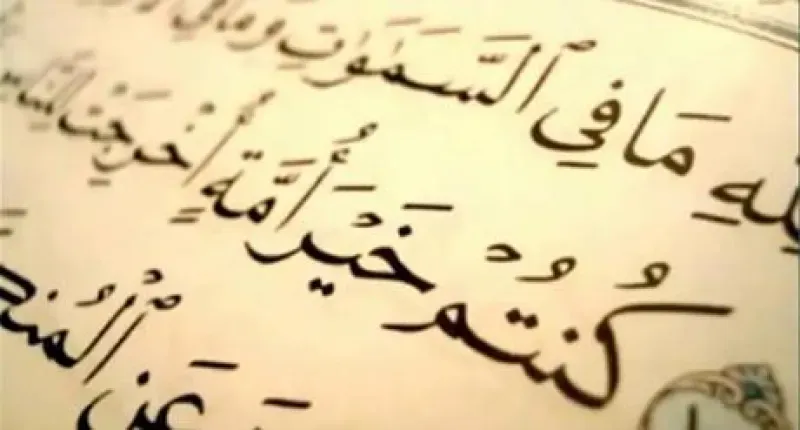 لِلَّهِ مَا فِي ٱلسَّمَٰوَٰتِ وَمَا فِي
كُنتُمْ خَيْرَ أُمَّةٍ أُخْرِجَتْ لِلنَّاسِ
عَنِ ٱلْمُنكَرِ